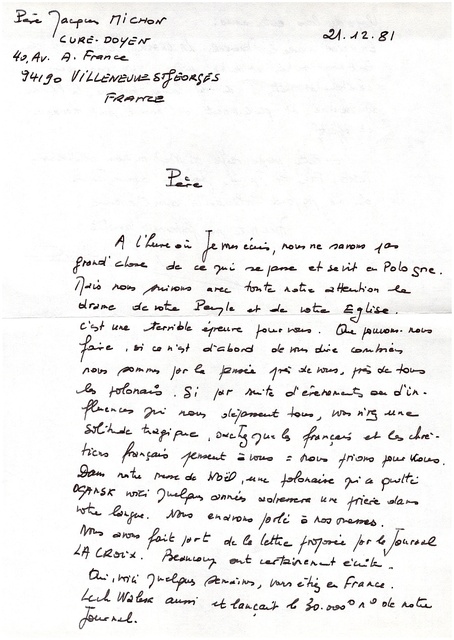 Père Jacques MICHON
CURE-DOYEN
21.12.81
40, Av. A. France
94190 VILLENEUVE ST GEORGES
FRANCE
Père
A l'heure où Je vous écris, nous ne savons pas
grand'chose de ce qui se passe et se vit en Pologne.
Mais nous suivons avec toute notre attention le
drame de votre Peuple et de votre Eglise.
C'est une terrible épreuve pour vous. Que pouvons-nous
faire, si ce n'est d'abord de vous dire combien
nous sommes par la pensée près de vous, près de tous
les polonais. Si par suite d'évènements ou d'in-
fluences qui nous dépassent tous, vous vivez une
solitude tragique, sachez que les français et les chré-
tiens français pensent à vous = nous prions pour vous.
Dans notre messe de NOËL, une polonaise qui a quitté
DGANSK voici quelques années adressera une prière dans
votre langue. Nous en avons parlé à nos messes.
Nous avons fait part de la lettre proposée par le Journal
LA CROIX. Beaucoup ont certainement écrit.
Oui, voici quelques semaines, vous étiez en France.
Lech Walesa aussi et lançait le 30.000° n° de notre
Journal.